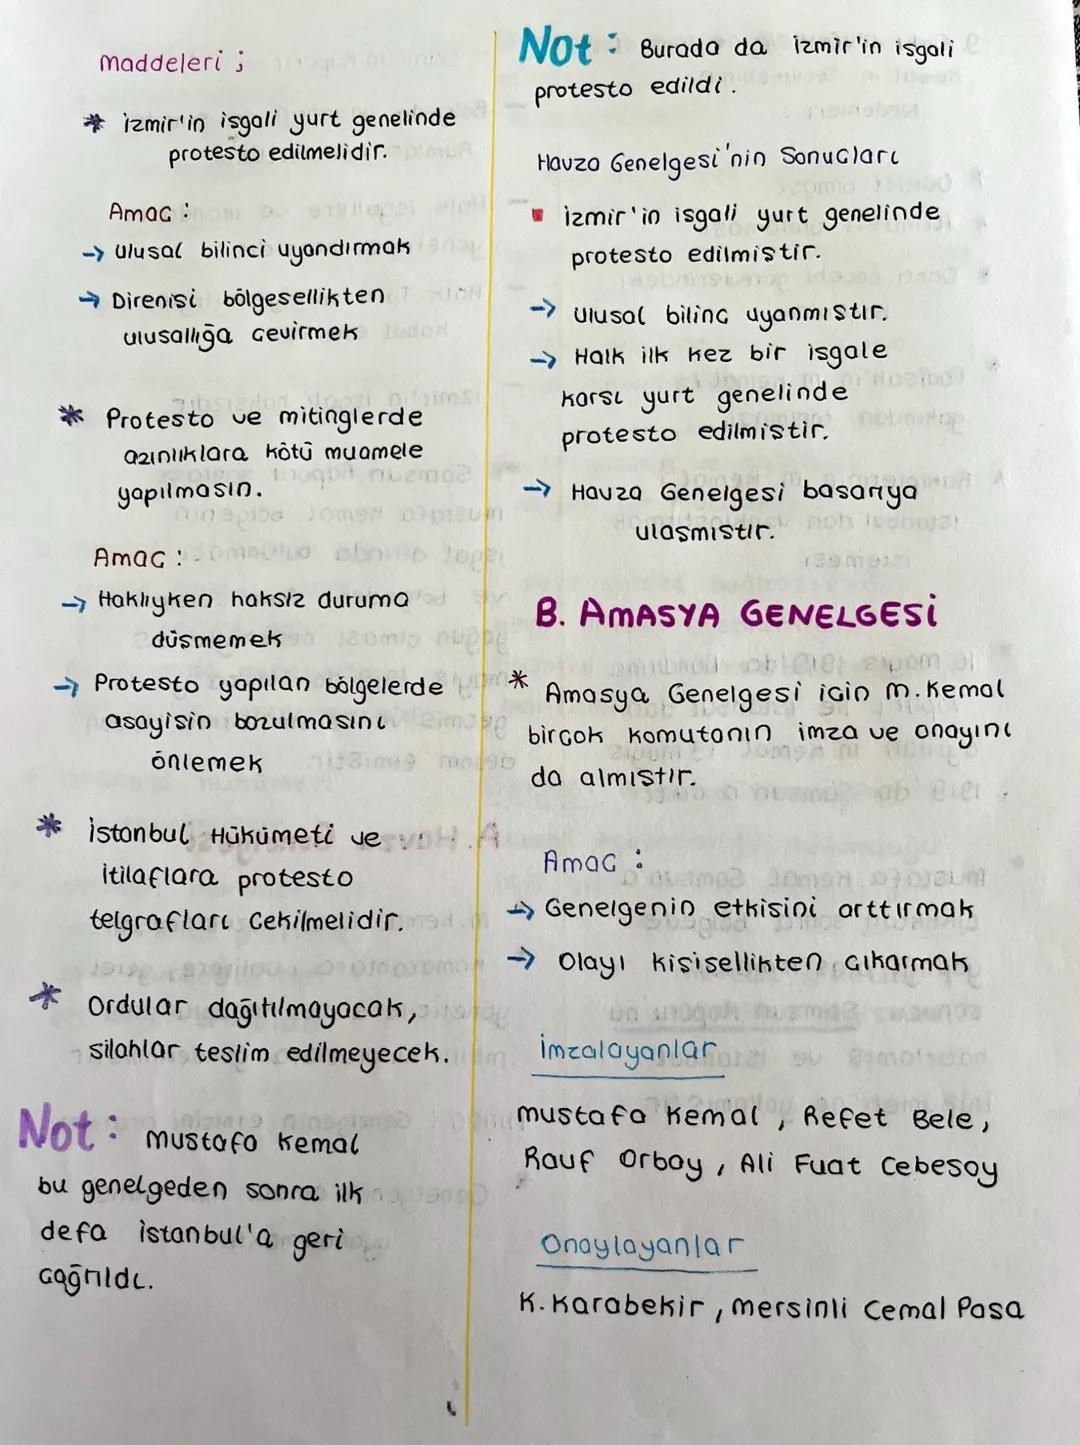 maddeleri ;
* izmir'in işgali yurt genelinde
protesto edilmelidir.
Amaç :
→ ulusal bilinci uyandırmak
→ Direnişi bölgesellikten
ulusallığa çevirmek
* Protesto ve mitinglerde
azınlıklara kötü muamele
yapılmasın.
Amaç :
→ Haklıyken haksız duruma
düşmemek
→ Protesto yapılan bölgelerde
asayişin bozulmasını
önlemek
* İstanbul Hükümeti ve
itilaflara protesto
telgrafları çekilmelidir.
* Ordular dağıtılmayacak,
silahlar teslim edilmeyecek.
Not : mustafa Kemal
bu genelgeden sonra ilk
defa istanbul'a geri
çağrıldı.
Not : Burada da izmir'in işgali
protesto edildi.
Havza Genelgesi'nin Sonuçları
▪ izmir'in işgali yurt genelinde
protesto edilmiştir.
→ ulusal bilinç uyanmıştır.
→ Halk ilk kez bir işgale
karşı yurt genelinde
protesto edilmiştir.
→ Havza Genelgesi başarıya
ulaşmıştır.
B. AMASYA GENELGESİ
* Amasya Genelgesi için m. Kemal
birçok komutanın imza ve onayını
da almıştır.
Amaç :
→ Genelgenin etkisini arttırmak
→ Olayı kişisellikten çıkarmak
İmzalayanlar
mustafa Kemal, Refet Bele,
Rauf Orbay, Ali Fuat Cebesoy
Onaylayanlar
K. Karabekir, mersinli Cemal Paşa